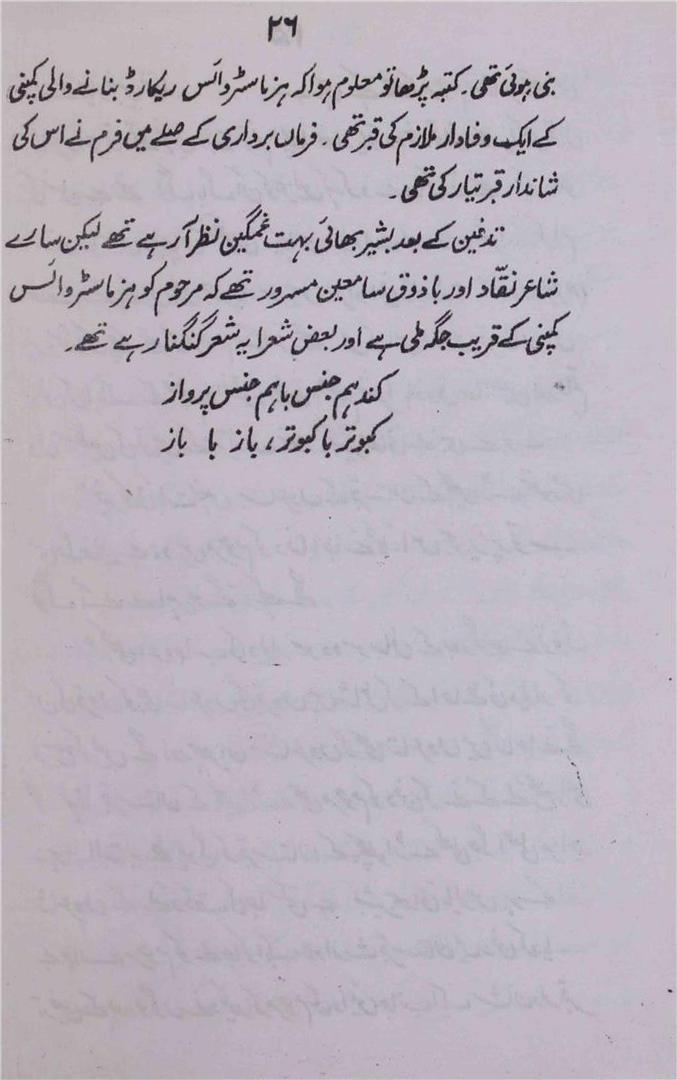 ۲۶
بنی ہوئی تھی۔ کتبہ پڑھا تو معلوم ہوا کہ ہز ماسٹر وائس ریکارڈ بنانے والی کمپنی
کے ایک وفادار ملازم کی قبر تھی۔ فرماں برداری کے صلے میں فرم نے اس کی
شاندار قبر تیار کی تھی۔
تدفین کے بعد بشیر بھائی بہت غمگین نظر آرہے تھے لیکن سارے
شاعر نقّاد اور باذوق سامعین مسرور تھے کہ مرحوم کو ہز ماسٹر وائس
کمپنی کے قریب جگہ ملی ہے اور بعض شعرا یہ شعر گنگنا رہے تھے۔
کند ہم جنس باہم جنس پرواز
کبوتر با کبوتر، باز با باز